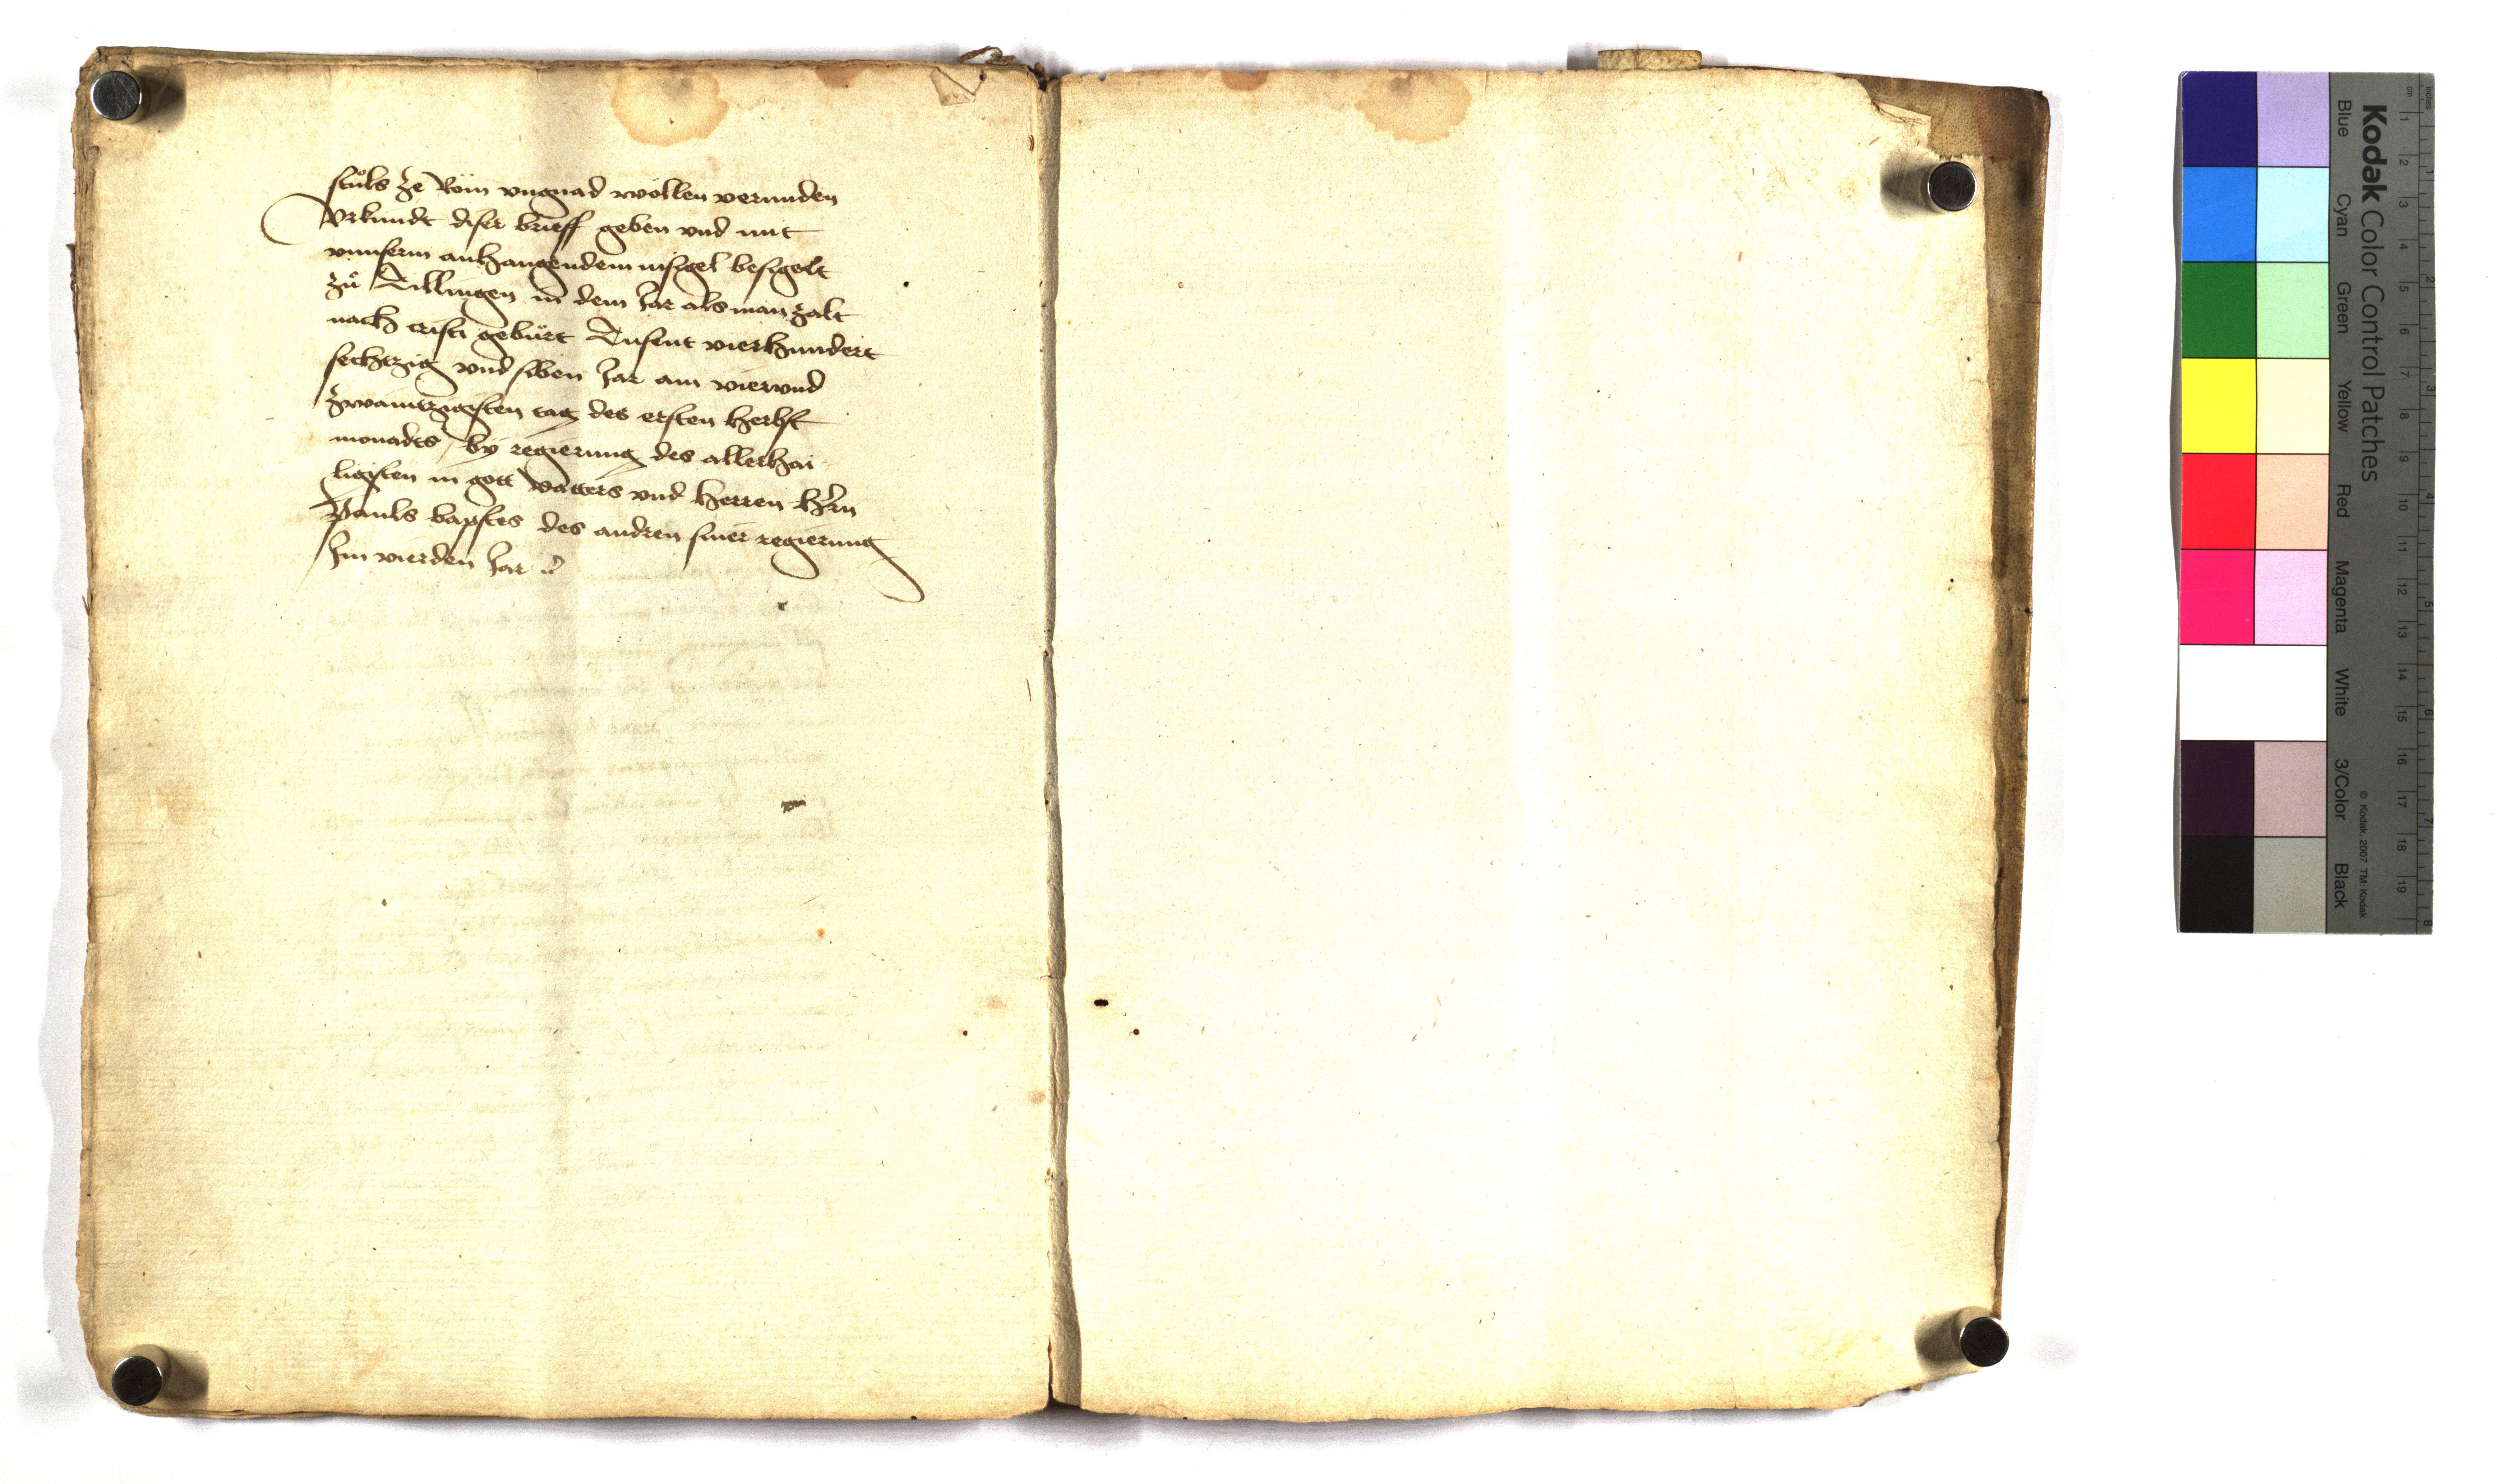 stůls ze Rom vngnad wöllen vermiden
Vrkundt diser brieff geben vnd mit
vnnserm anhangendem insigel besigelt
zů Dillingen in dem Jar als man zalt
nach cristi gebürt Tusent vierhundert
sechtzig vnd siben Jar am viervnd
zwaintzigisten tag des ersten herbst
monadts / by regierung des allerhai
ligisten in gott vatters vnd herren hern
Pauls bapstes des andren siner regierung
Im vierden Jar
Kodak Color Control Patches
Blue Cyan Green Yellow Red Magenta White 3/Color Black
© Kodak, 2007 TM: Kodak
cm 1 2 3 4 5 6 7 8 9 10 11 12 13 14 15 16 17 18 19
inches 1 2 3 4 5 6 7 8